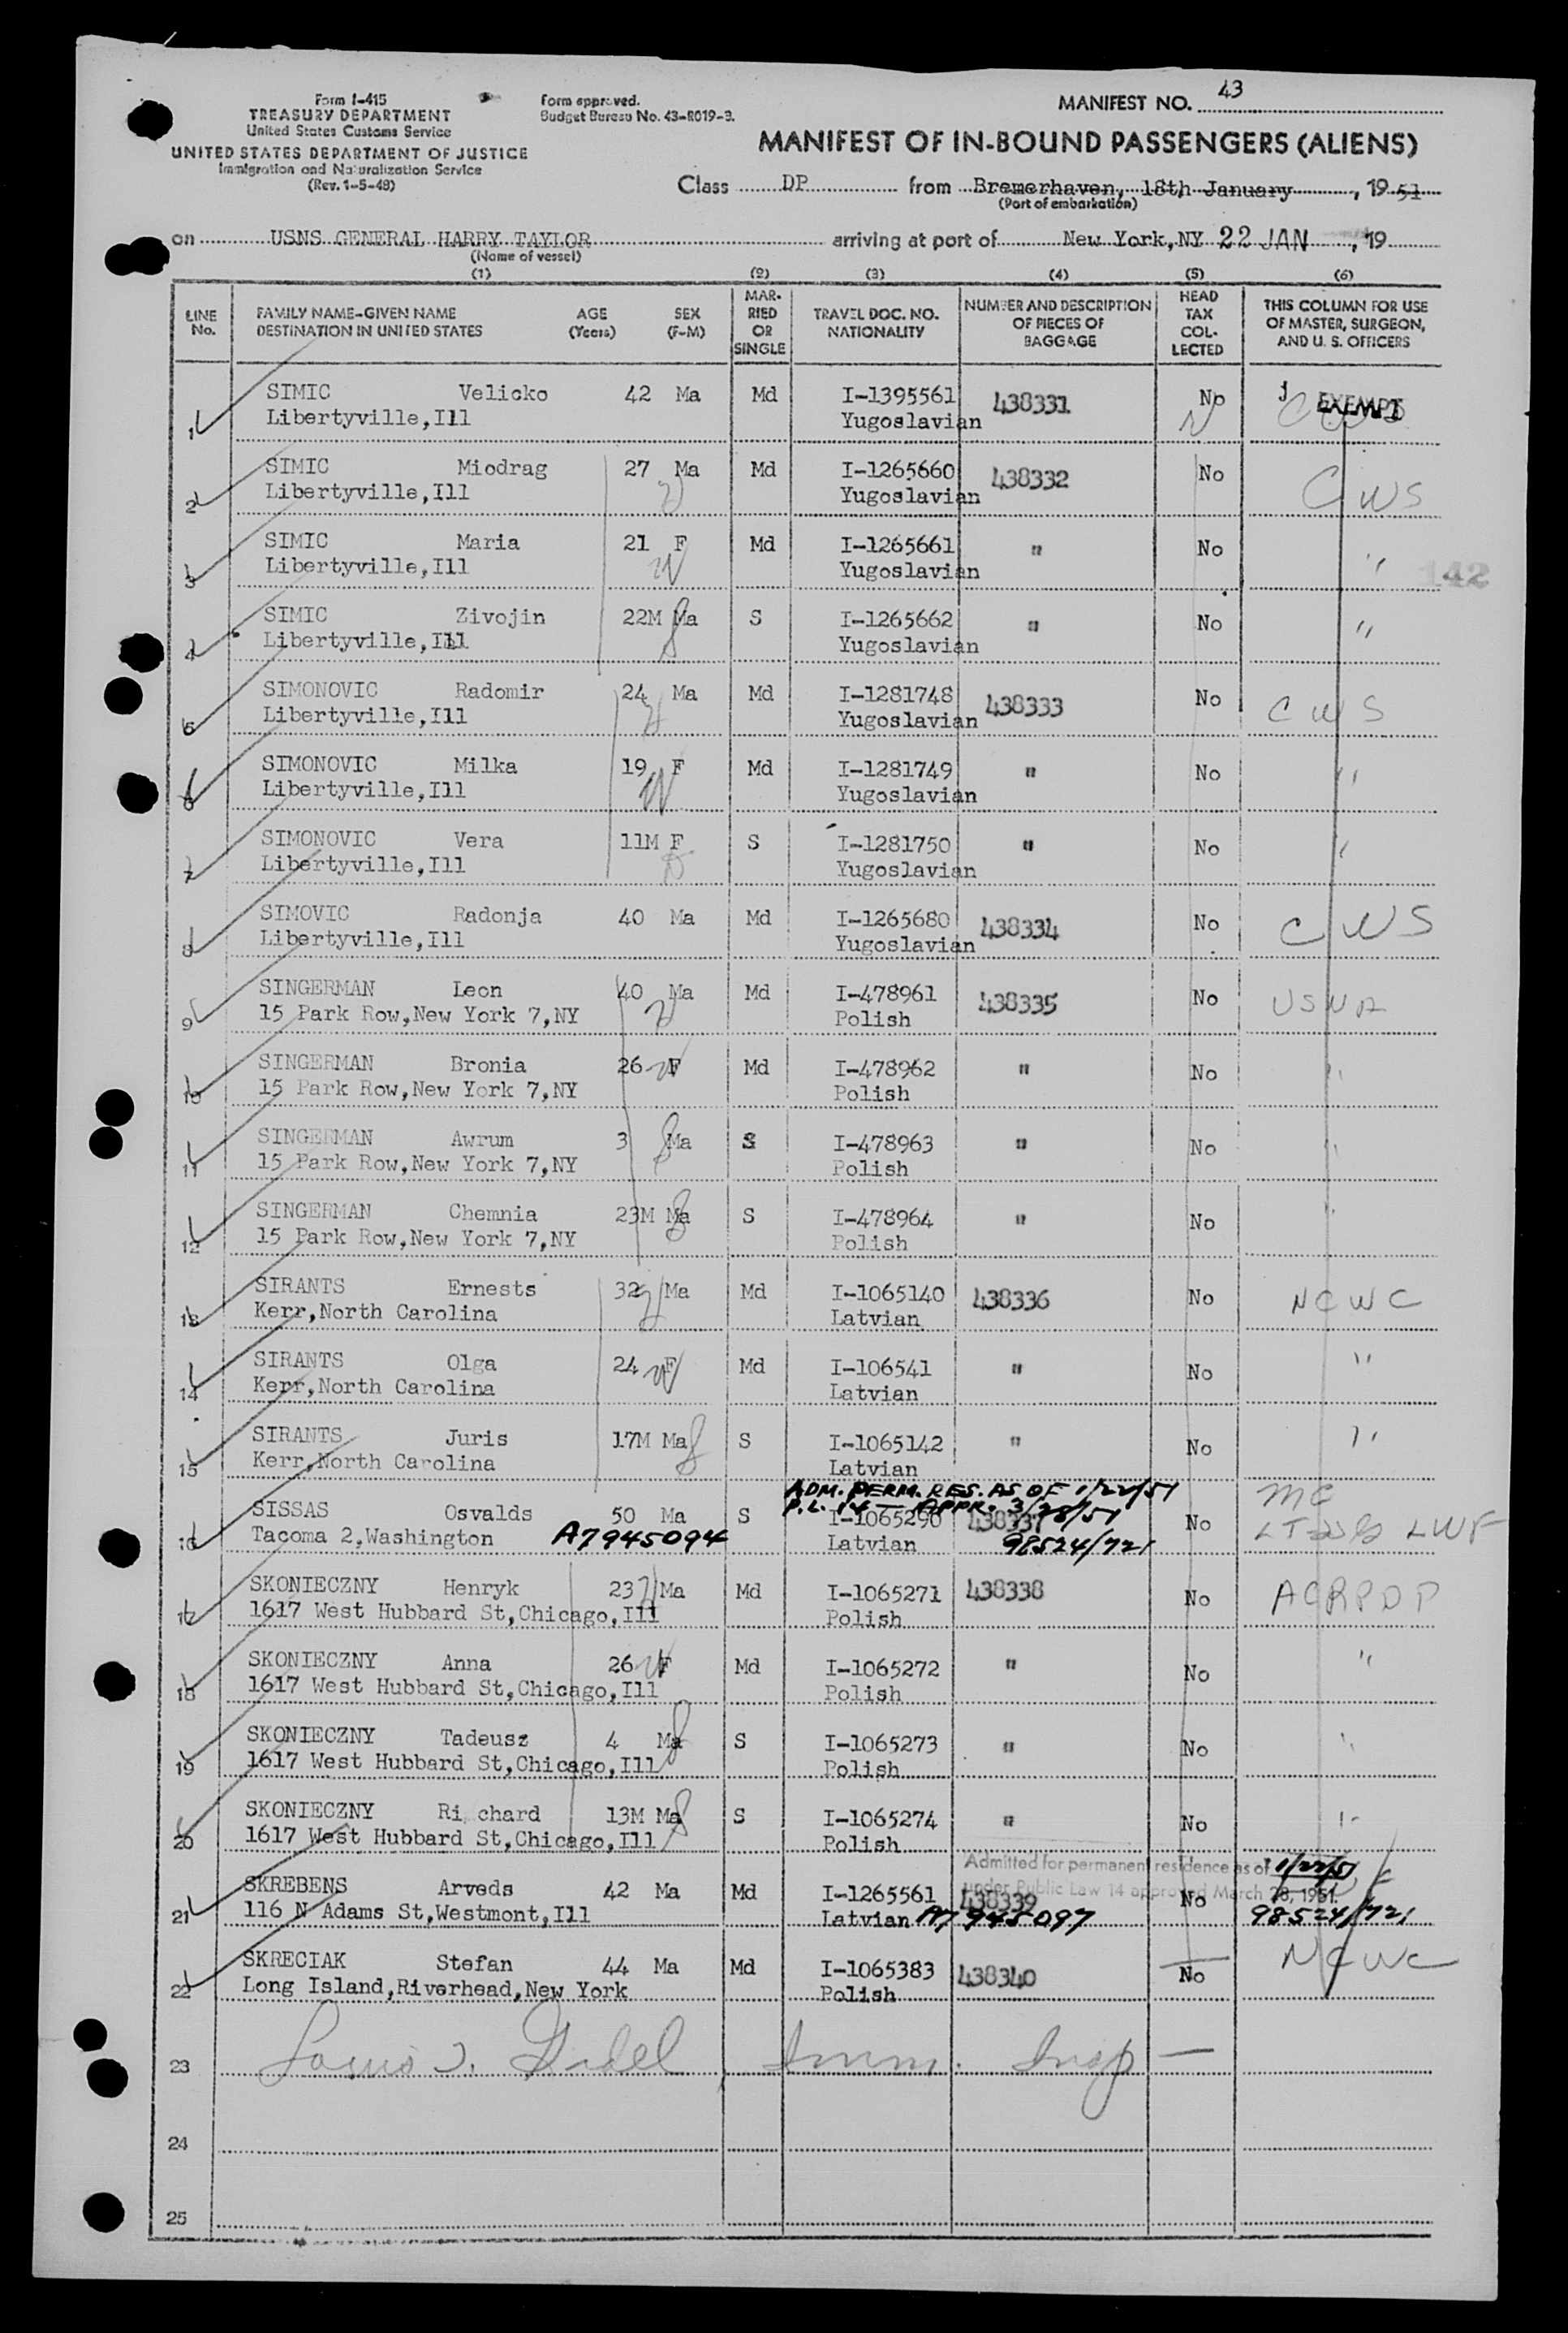 Form I-415
TREASURY DEPARTMENT
United States Customs Service
UNITED STATES DEPARTMENT OF JUSTICE
Immigration and Naturalization Service
(Rev. 1-5-49)
Form approved.
Budget Bureau No. 43-R019-3.
MANIFEST NO. 43
MANIFEST OF IN-BOUND PASSENGERS (ALIENS)
Class DP from Bremerhaven, 18th January, 19 51
(Port of embarkation)
on USNS GENERAL HARRY TAYLOR arriving at port of New York, NY 22 JAN, 19
(Name of vessel)
(1) (2) (3) (4) (5) (6)
LINE No. FAMILY NAME-GIVEN NAME DESTINATION IN UNITED STATES AGE (Years) SEX (F-M) MARRIED OR SINGLE TRAVEL DOC. NO. NATIONALITY NUMBER AND DESCRIPTION OF PIECES OF BAGGAGE HEAD TAX COLLECTED THIS COLUMN FOR USE OF MASTER, SURGEON, AND U. S. OFFICERS
1 SIMIC Velicko 42 Ma Md I-1395561 438331 No EXEMPT
Libertyville,Ill Yugoslavian
2 SIMIC Miodrag 27 Ma Md I-1265660 438332 No CWS
Libertyville,Ill Yugoslavian
3 SIMIC Maria 21 F Md I-1265661 " No "
Libertyville,Ill Yugoslavian 142
4 SIMIC Zivojin 22M Ma S I-1265662 " No "
Libertyville,Ill Yugoslavian
5 SIMONOVIC Radomir 24 Ma Md I-1281748 438333 No CWS
Libertyville,Ill Yugoslavian
6 SIMONOVIC Milka 19 F Md I-1281749 " No "
Libertyville,Ill Yugoslavian
7 SIMONOVIC Vera 11M F S I-1281750 " No "
Libertyville,Ill Yugoslavian
8 SIMOVIC Radonja 40 Ma Md I-1265680 438334 No CWS
Libertyville,Ill Yugoslavian
9 SINGERMAN Leon 40 Ma Md I-478961 438335 No USNA
15 Park Row,New York 7,NY Polish
10 SINGERMAN Bronia 26 F Md I-478962 " No "
15 Park Row,New York 7,NY Polish
11 SINGERMAN Awrum 3 Ma S I-478963 " No "
15 Park Row,New York 7,NY Polish
12 SINGERMAN Chemnia 23M Ma S I-478964 " No "
15 Park Row,New York 7,NY Polish
13 SIRANTS Ernests 32 Ma Md I-1065140 438336 No NCWC
Kerr,North Carolina Latvian
14 SIRANTS Olga 24 F Md I-106541 " No "
Kerr,North Carolina Latvian
15 SIRANTS Juris 17M Ma S I-1065142 " No "
Kerr,North Carolina Latvian
ADM. PERM. RES. AS OF 1/22/51
P.L. 14 — APPR. 3/28/51
16 SISSAS Osvalds 50 Ma S I-1065290 438337 No LWF
Tacoma 2,Washington A7945094 Latvian 98524/721
17 SKONIECZNY Henryk 23 Ma Md I-1065271 438338 No ACRPDP
1617 West Hubbard St,Chicago,Ill Polish
18 SKONIECZNY Anna 26 F Md I-1065272 " No "
1617 West Hubbard St,Chicago,Ill Polish
19 SKONIECZNY Tadeusz 4 Ma S I-1065273 " No "
1617 West Hubbard St,Chicago,Ill Polish
20 SKONIECZNY Ri chard 13M Ma S I-1065274 " No "
1617 West Hubbard St,Chicago,Ill Polish
Admitted for permanent residence as of 1/22/51
under Public Law 14 approved March 28, 1951.
21 SKREBENS Arveds 42 Ma Md I-1265561 438339 No
116 N Adams St,Westmont,Ill Latvian A7945097 98524/721
22 SKRECIAK Stefan 44 Ma Md I-1065383 438340 No NCWC
Long Island,Riverhead,New York Polish
23 Imm. Insp —
24
25